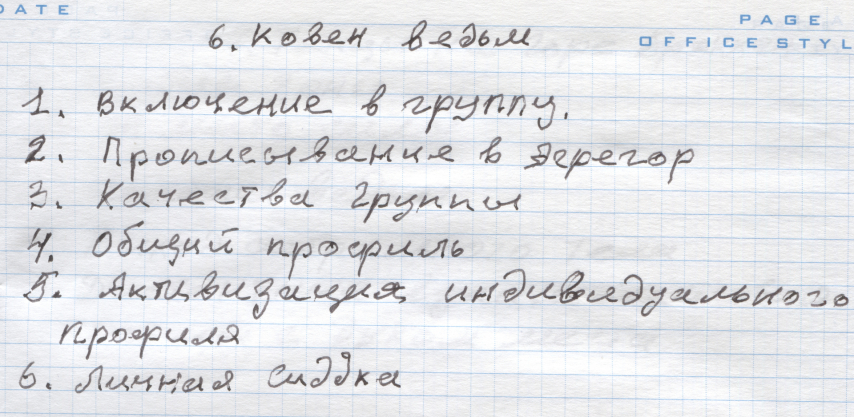 DATE
PAGE
OFFICE STYL
6. Ковен ведьм
1. Включение в группу.
2. Прописывание в эгрегор
3. Качества группы
4. Общий профиль
5. Активизация индивидуального
профиля
6. Личная сиддха